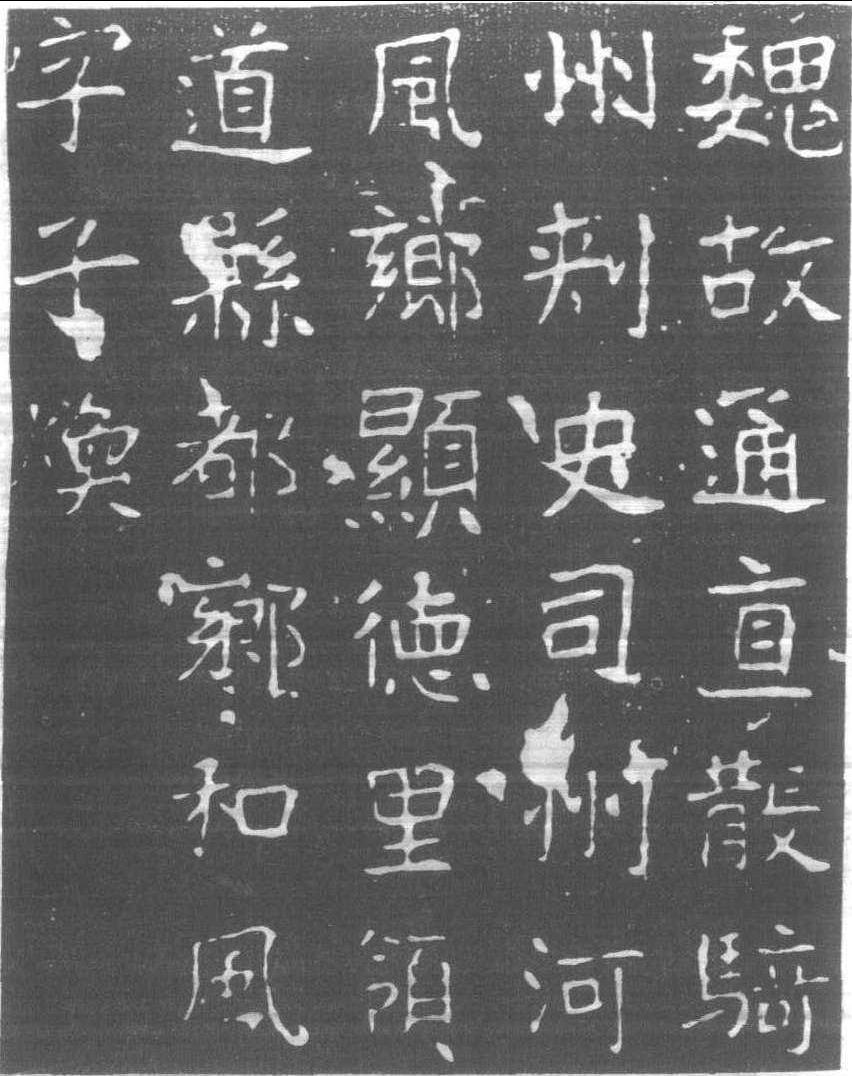 魏故通直散騎
州刾史司州河
風鄉顯德里領
道縣都鄉和風
字子渙